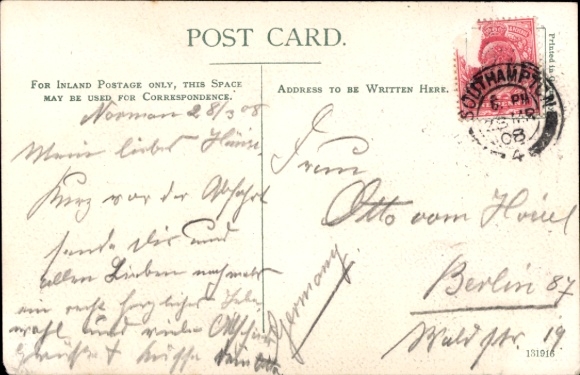 POST CARD.
FOR INLAND POSTAGE ONLY, THIS SPACE
MAY BE USED FOR CORRESPONDENCE.
28/3 08
Mein liebes
Kurz vor der Abfahrt
sende Dir und
allen Lieben nochmals
ein recht herzliches Lebe
wohl und viele
Grüße & Küsse dein Otto
ADDRESS TO BE WRITTEN HERE.
Printed in
SOUTHAMPTON
PM
MR
08
4
Frau
Otto vom
Berlin 87
Waldstr. 19
Germany
131916